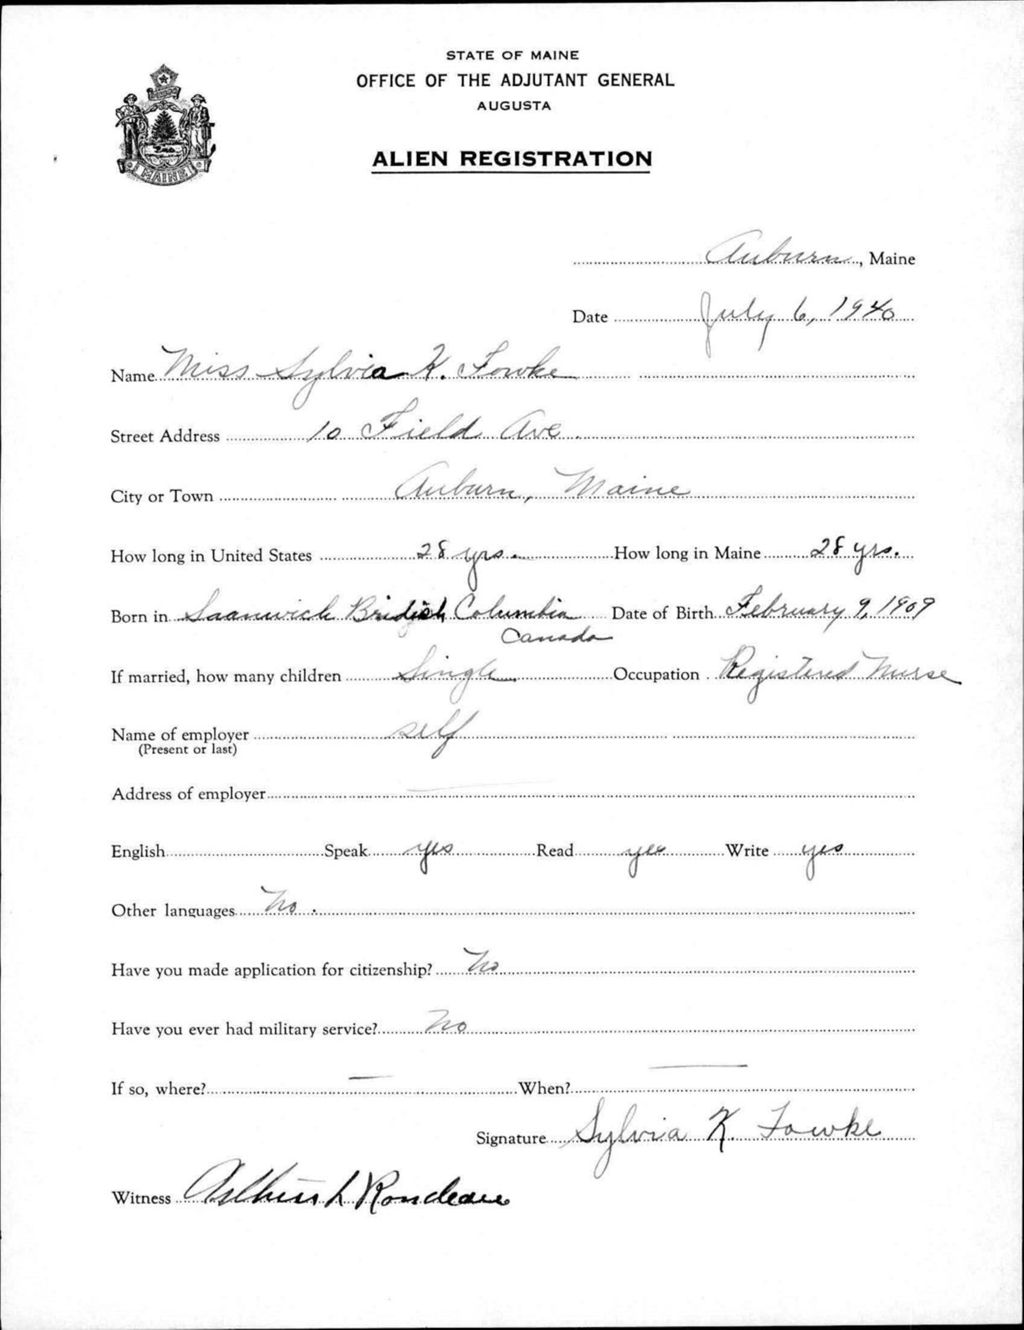 STATE OF MAINE
OFFICE OF THE ADJUTANT GENERAL
AUGUSTA
ALIEN REGISTRATION
MAINE
Auburn, Maine
Date July 6, 1940
Name Miss Sylvia K. Fowke
Street Address 10 Field Ave
City or Town Auburn, Maine
How long in United States 28 yrs. How long in Maine 28 yrs.
Born in Saanwich British Columbia Date of Birth February 9, 1909
Canada
If married, how many children Single Occupation Registered Nurse
Name of employer self
(Present or last)
Address of employer —
English Speak yes Read yes Write yes
Other languages No.
Have you made application for citizenship? No
Have you ever had military service? No
If so, where? — When? —
Signature Sylvia K. Fowke
Witness L Rondeau